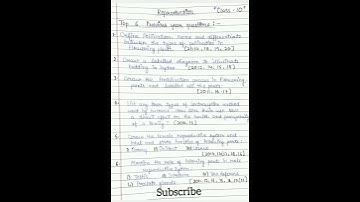 Reproduction "Class - 10"
Top 6 Previous year questions :-
1. Define Pollination. Name and differentiate
between the types of pollination in
flowering plants. (2012, 18, 19, 20)
2. Draw a labelled diagram to illustrate
budding in hydra. (2012, 14, 15, 19)
3. Draw the fertilisation process in flowering
plants and labelled all the parts.
(2011, 16, 17)
4. List any four types of contraceptive method
used by humans. How does their use have
a direct effect on the health and prosperity
of a family?
5. Draw the female reproductive system and
label and give function of following parts:
i) Ovary
6. Mention the role of following parts in male
reproductive system:
i) Testis
iv) Prostate glands
Subscribe